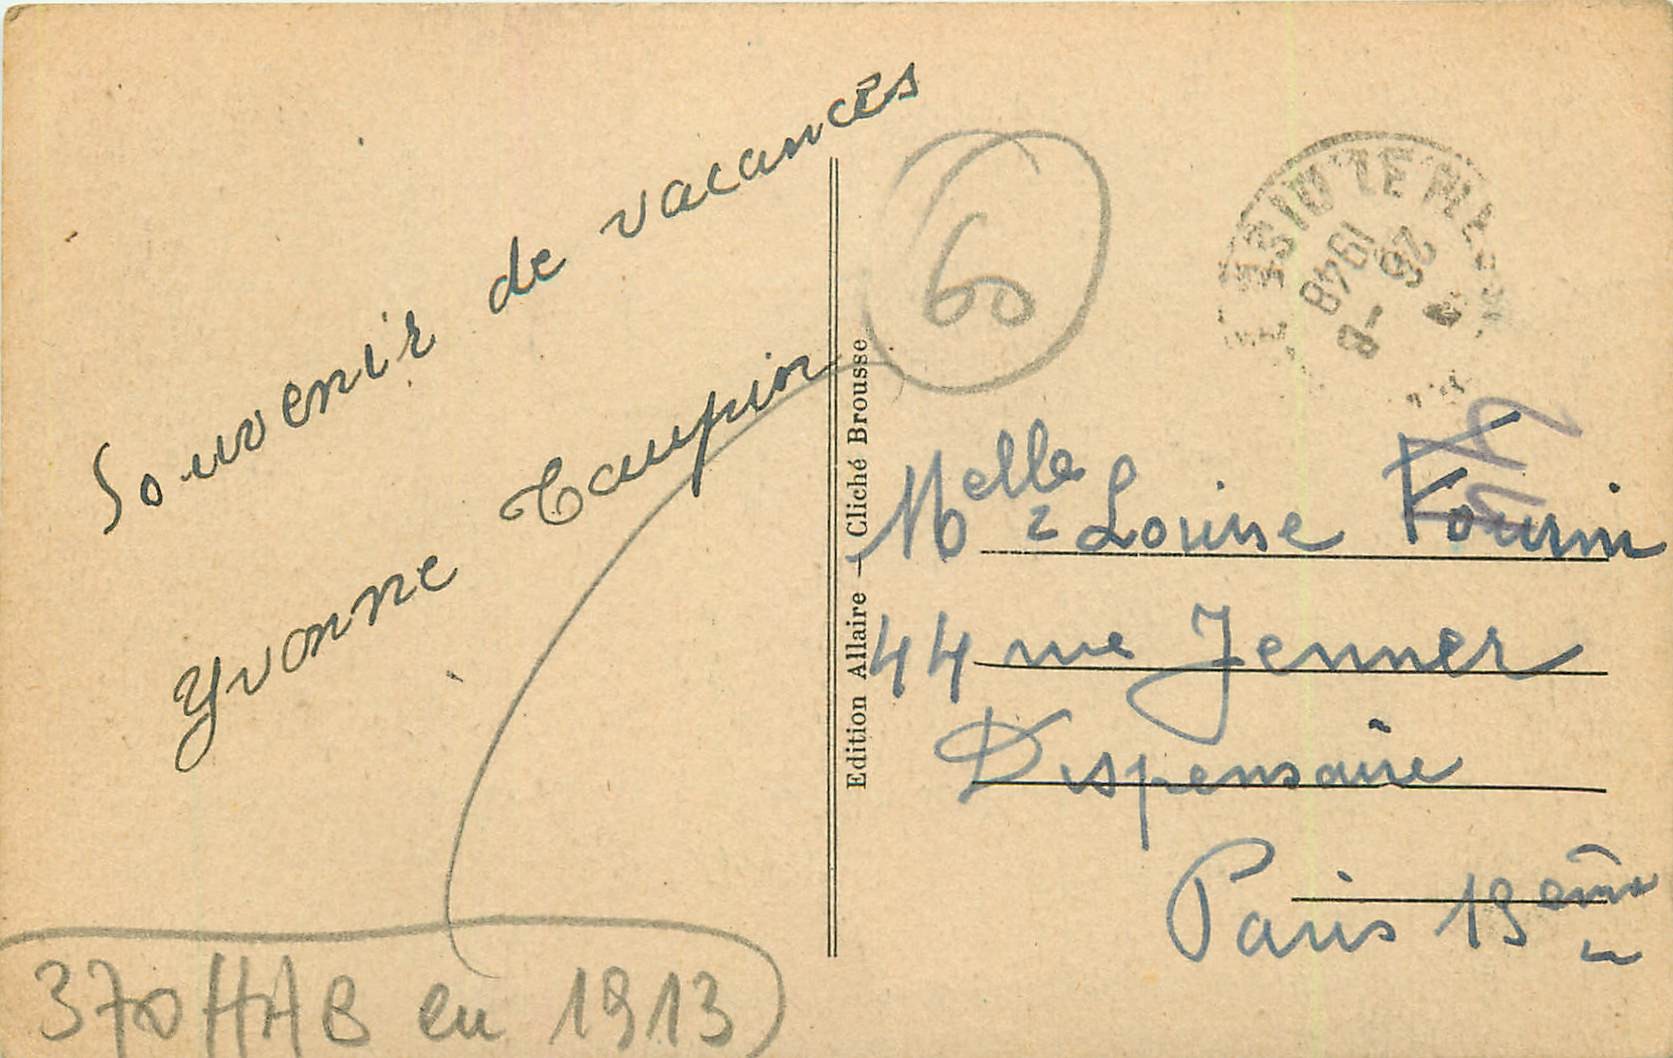 Souvenir de vacances
Yvonne Taupin
60
26 -8
1948
Edition Allaire — Cliché Brousse
Melle Louise
44 rue Jenner
Dispensaire
Paris 13ème
370 HAB en 1913